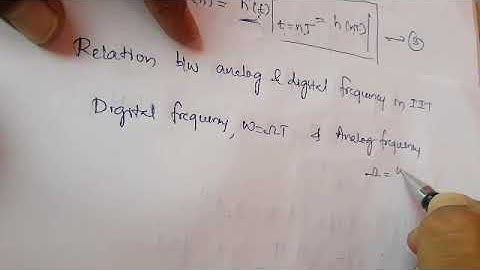 = h(t)| t=nT = h(nT) → ③
Relation b/w analog & digital frequency in IIT
Digital frequency, ω=ΩT & Analog frequency
Ω = ω